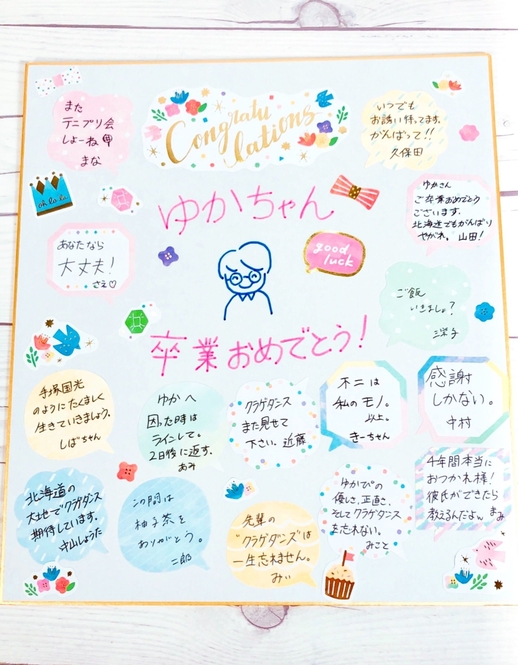 また
テニプリ会
しよーね
まな
Congratu
lations
いつでも
お誘い待ってます。
がんばって!!
久保田
oh la la
ゆかちゃん
ゆかさん
ご卒業おめでとう
ございます。
北海道でもがんばり
やがれ。山田!
あなたなら
大丈夫!
さえ♡
good
luck
ご飯
いきましょ?
卒業おめでとう!
手塚国光
のようにたくましく
生きていきましょう。
しばちゃん
ゆかへ
困った時は
ラインして。
2日後に返す。
あみ
クラゲダンス
また見せて
下さい。近藤
不二は
私のモノ。
以上。
きーちゃん
感謝
しかない。
中村
北海道の
大地でクラゲダンス
期待しています。
守山しょうた
この間は
柚子茶を
ありがとう。
二郎
先輩の
"クラゲダンス"は
一生忘れません。
みぃ
ゆかぴの
優しさ、正直さ、
そしてクラゲダンス
を忘れない。
みこと
4年間本当に
おつかれ様!
彼氏ができたら
教えるんだよん